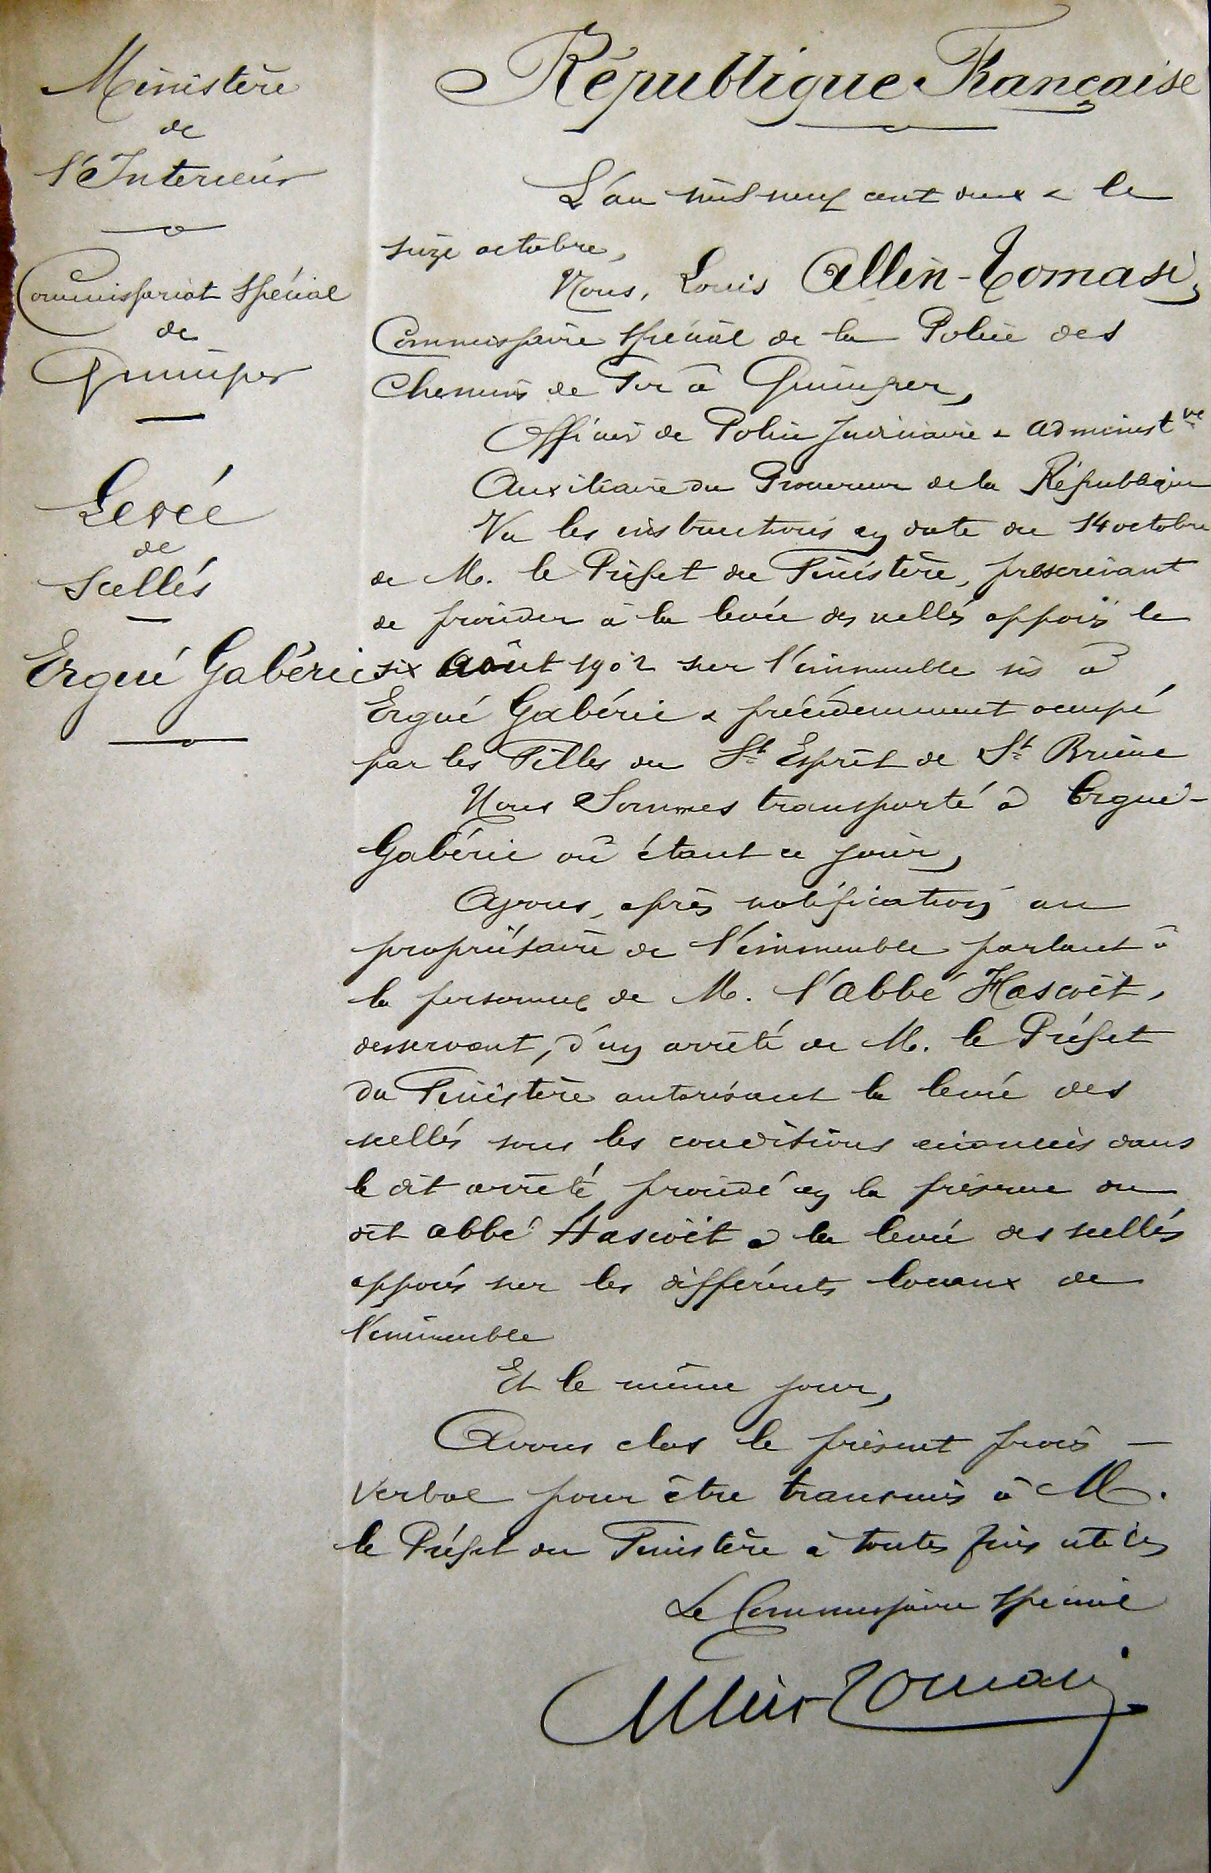 Ministère
de
l'Interieur
Commissariat Spécial
de
Quimper
Levée
de
Scellés
Ergué Gabéric
République Française
L'an mil neuf cent deux & le
seize octobre,
Nous, Louis Allein-Tomasi,
Commissaire Spécial de la Police des
Chemins de Fer à Quimper,
Officier de Police Judiciaire & administve
Auxiliaire du Procureur de la République
Vu les instructions en date du 14 octobre
de M. le Préfet du Finistère, prescrivant
de procéder à la levée des scellés apposés le
six Août 1902 sur l'immeuble sis à
Ergué Gabéric & précédemment occupé
par les Filles du St Esprit de St Brieuc
Nous Sommes transporté à Ergué-
Gabéric où étant ce jour,
Avons, après notification au
propriétaire de l'immeuble parlant à
la personne de M. l'abbé Hascoët,
desservant, d'un arrêté de M. le Préfet
du Finistère autorisant la levée des
scellés sous les conditions énoncées dans
le dit arrêté, procédé en la présence du
dit abbé Hascoët à la levée des scellés
apposés sur les différents locaux de
l'immeuble
Et le même jour,
Avons clos le présent procès-
verbal pour être transmis à M.
le Préfet du Finistère à toutes fins utiles
Le Commissaire Spécial
Allein-Tomasi